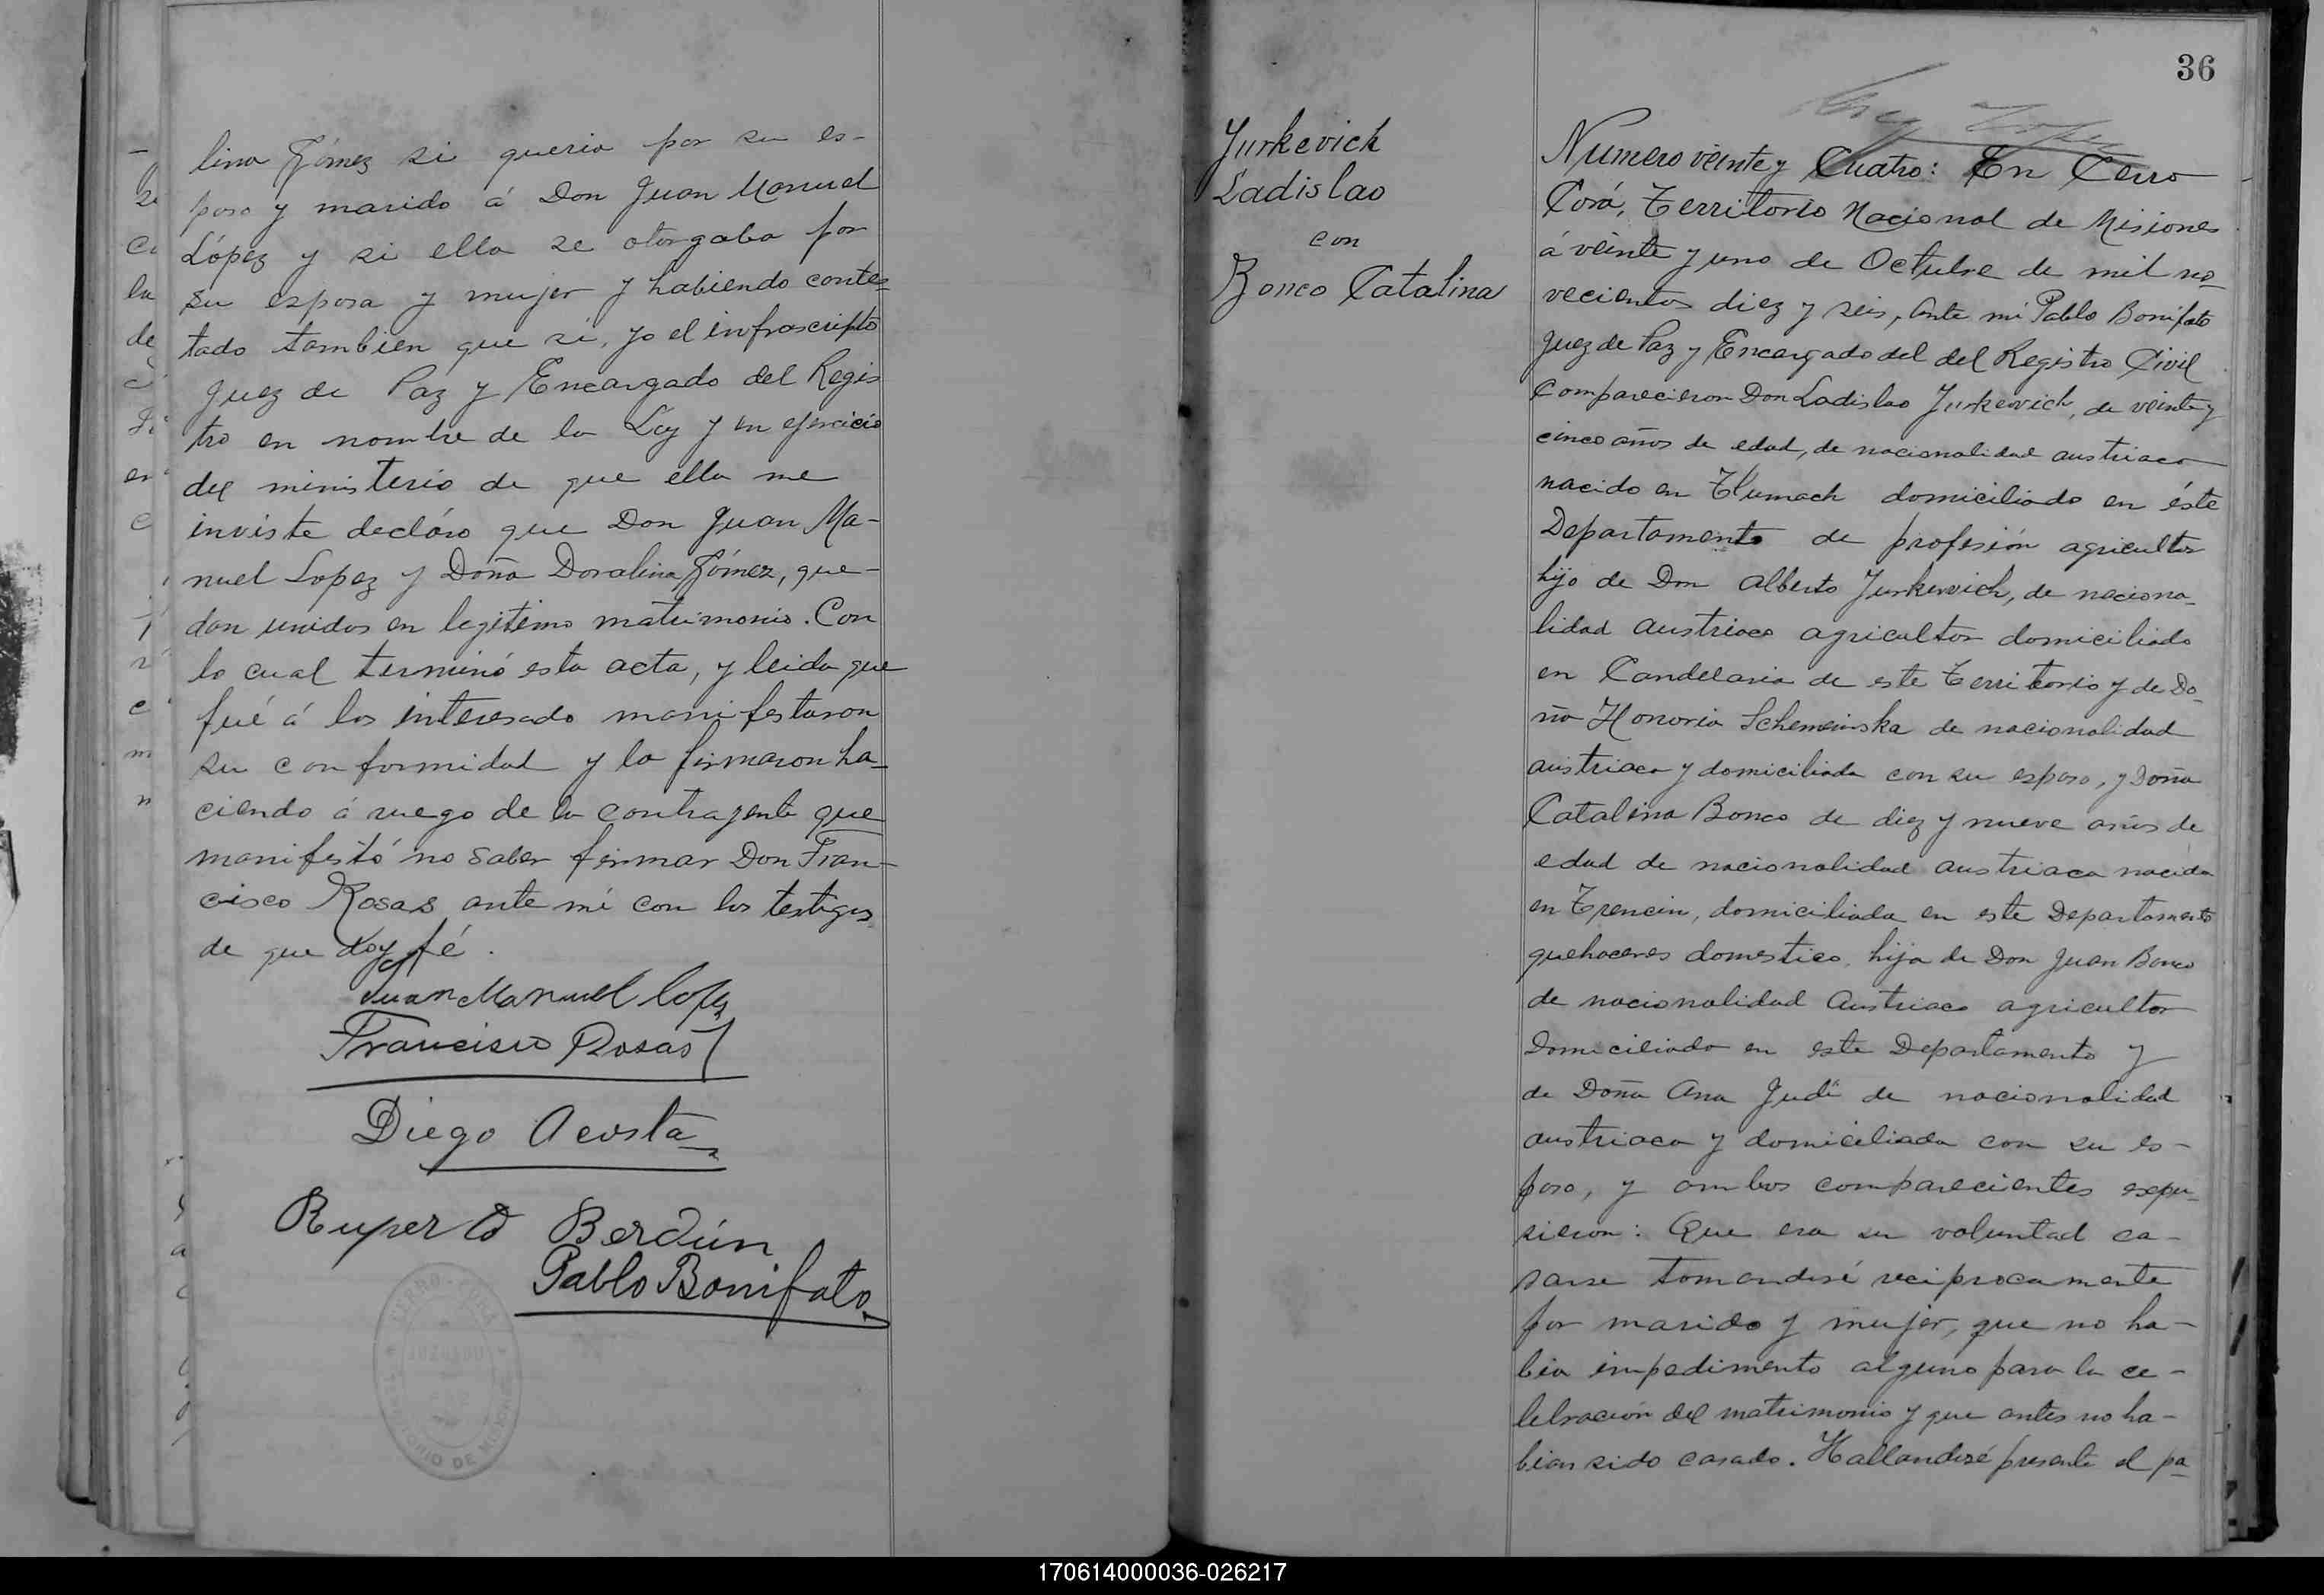 lina Gómez si queria por su es-
poso y marido á Don Juan Manuel
López y si ella se otorgaba por
su esposa y mujer y habiendo contes-
tado tambien que si, yo el infrascripto
Juez de Paz y Encargado del Regis
tro en nombre de la Ley y en ejercicio
del ministerio de que ella me
inviste decláro que Don Juan Ma-
nuel Lopez y Doña Doralina Gómez, que-
dan unidos en legitimo matrimonio. Con
lo cual terminó esta acta, y leida que
fué á los interesado manifestaron
su conformidad y la firmaron ha-
ciendo á ruego de la contrayente que
manifestó no saber firmar Don Fran-
cisco Rosas ante mi con los testigos
de que doy fé.
Juan Manuel Lopez
Francisco Rosas
Diego Acosta
Ruperto Berdún
Pablo Bonifato
36
Yurkevich
Ladislao
con
Bonco Catalina
Numero veinte y Cuatro: En Cerro
Corá, Territorio Nacional de Misiones
á veinte y uno de Octubre de mil no-
vecientos diez y seis, ante mi Pablo Bonifato
Juez de Paz y Encargado del del Registro Civil
Comparecieron Don Ladislao Yurkevich, de veinte y
cinco años de edad, de nacionalidad austriaca
nacido en Tlumach domiciliado en éste
Departamento de profesión agricultor
hijo de Don Alberto Yurkevich, de naciona-
lidad austriaca agricultor domiciliado
en Candelaria de este Territorio y de Do-
ña Honoria Schemeinska de nacionalidad
austriaca y domiciliada con su esposo, y Doña
Catalina Bonco de diez y nueve años de
edad de nacionalidad austriaca nacida
en Trencin, domiciliada en este Departamento
quehaceres domestico, hija de Don Juan Bonco
de nacionalidad Austriaco agricultor
Domiciliado en este Departamento y
de Doña Ana Judi de nacionalidad
austriaca y domiciliada con su es-
poso, y ambos comparecientes expu-
sieron: Que era su voluntad ca-
sarse tomandosé reciprocamente
por marido y mujer, que no ha-
bia impedimento alguno para la ce-
lebración del matrimonio y que antes no ha-
bian sido casado. Hallandosé presente el pa-
170614000036-026217